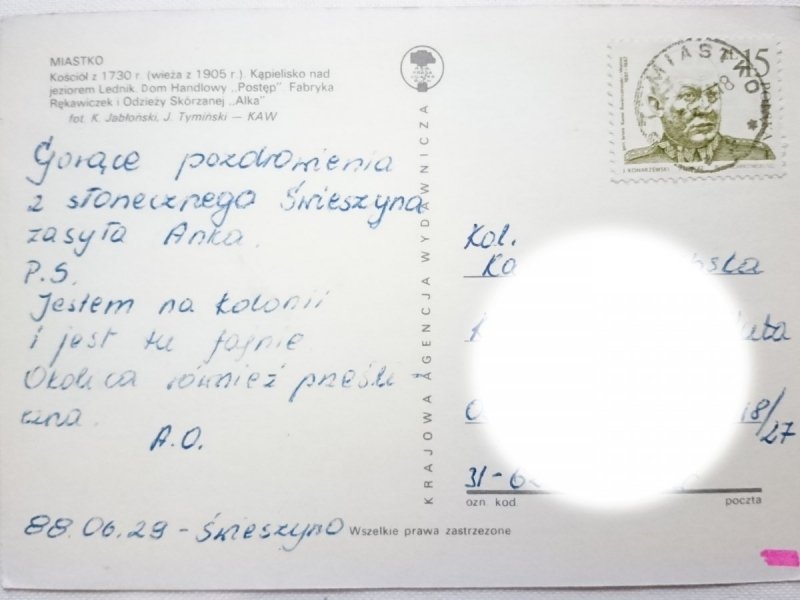 MIASTKO
Kościół z 1730 r. (wieża z 1905 r.). Kąpielisko nad
jeziorem Lednik. Dom Handlowy „Postęp". Fabryka
Rękawiczek i Odzieży Skórzanej „Alka"
fot. K. Jabłoński, J. Tymiński — KAW
Gorące pozdrowienia
z słonecznego Świeszyna
zasyła Anka.
P.S.
Jestem na kolonii
i jest tu fajnie.
Okolica również prześli-
czna.
A.O.
88.06.29 - Świeszyno
Wszelkie prawa zastrzezone
KRAJOWA AGENCJA WYDAWNICZA
MIASTKO
ZŁ 15
POLSKA
J. KONARZEWSKI
Kol.
18/27
ozn. kod.
poczta